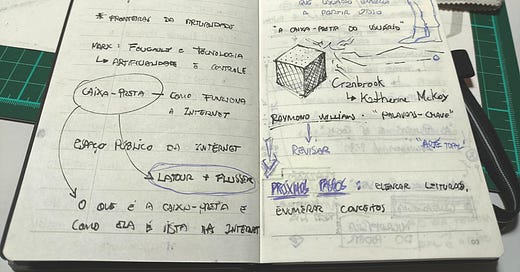 * FRONTEIRAS DA ARTIFICIALIDADE
MARX: FOUCAULT E TECNOLOGIA
↳ ARTIFICIALIDADE E CONTROLE
CAIXA-PRETA — COMO FUNCIONA
A INTERNET
ESPAÇO PÚBLICO DA INTERNET
LATOUR + FLUSSER
O QUE É A CAIXA-PRETA E
COMO ELA É VISTA NA INTERNET
A PARTIR DISSO
"A CAIXA-PRETA DO USUÁRIO"
Cranbrook
↳ Katherine McKoy
RAYMOND WILLIAMS: "PALAVRAS-CHAVE"
REVISAR
PRÓXIMOS PASSOS: ELENCAR LEITURAS,
ENUMERAR CONCEITOS